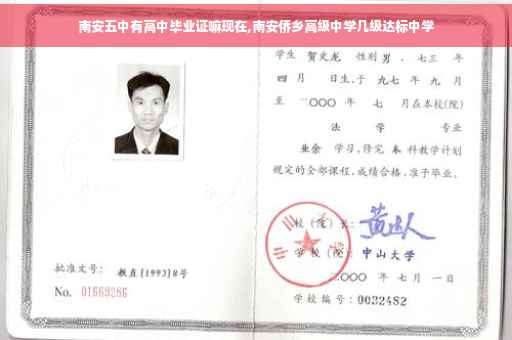 南安五中有高中毕业证嘛现在,南安侨乡高级中学几级达标中学
学生 贺文龙 性别 男 、七三 年
四 月 日生,于 九七 年 九 月
至 二〇〇〇 年 七 月在本校(院)
法 学 专业
业余 学习,修完 本 科教学计划
规定的全部课程,成绩合格,准于毕业。
校 (院) 长:
学 校 (院): 中山大学
二〇〇〇 年 七 月 一 日
批准文号: 教直[1993]8号
No. 01663286
学校编号: 0032482